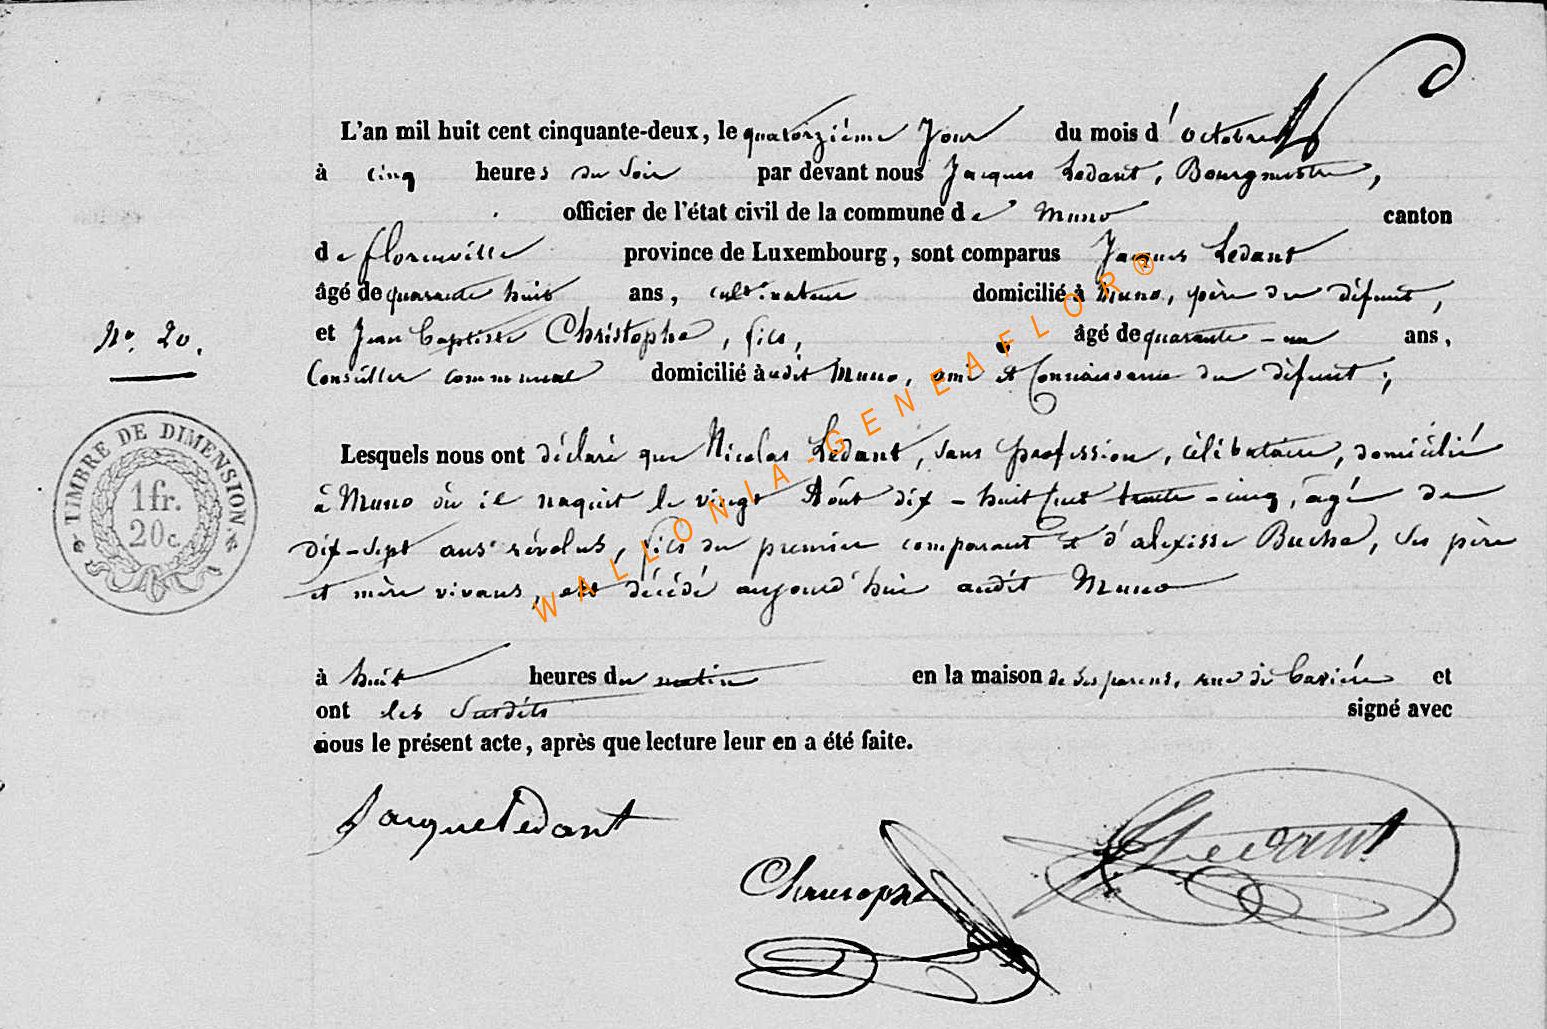 L'an mil huit cent cinquante-deux, le quatorzième Jour du mois d'octobre
à cinq heures du Soir par devant nous Jacques Ledant, Bourgmestre,
officier de l'état civil de la commune de Muno canton
de florenville province de Luxembourg, sont comparus Jacques Ledant
âgé de quarante huit ans, cultivateur domicilié à Muno, père du défunt,
No. 20.
et Jean Baptiste Christophe, fils, âgé de quarante-un ans,
Conseiller communal domicilié audit Muno, ami et Connaissance du défunt;
TIMBRE DE DIMENSION.
1 fr.
20 c.
Lesquels nous ont déclaré que Nicolas Ledant, sans profession, célibataire, domicilié
à Muno où il naquit le vingt Août dix-huit cent trente-cinq, âgé de
dix-sept ans révolus, fils du premier comparant et d'alexisse Buche, ses père
et mère vivans, est décédé aujourd'hui audit Muno
à huit heures du matin en la maison de ses parens, rue et
ont les susdits signé avec
nous le présent acte, après que lecture leur en a été faite.
Jacque Ledant
Christophe
Ledant
WALLONIA-GENEAFLOR®